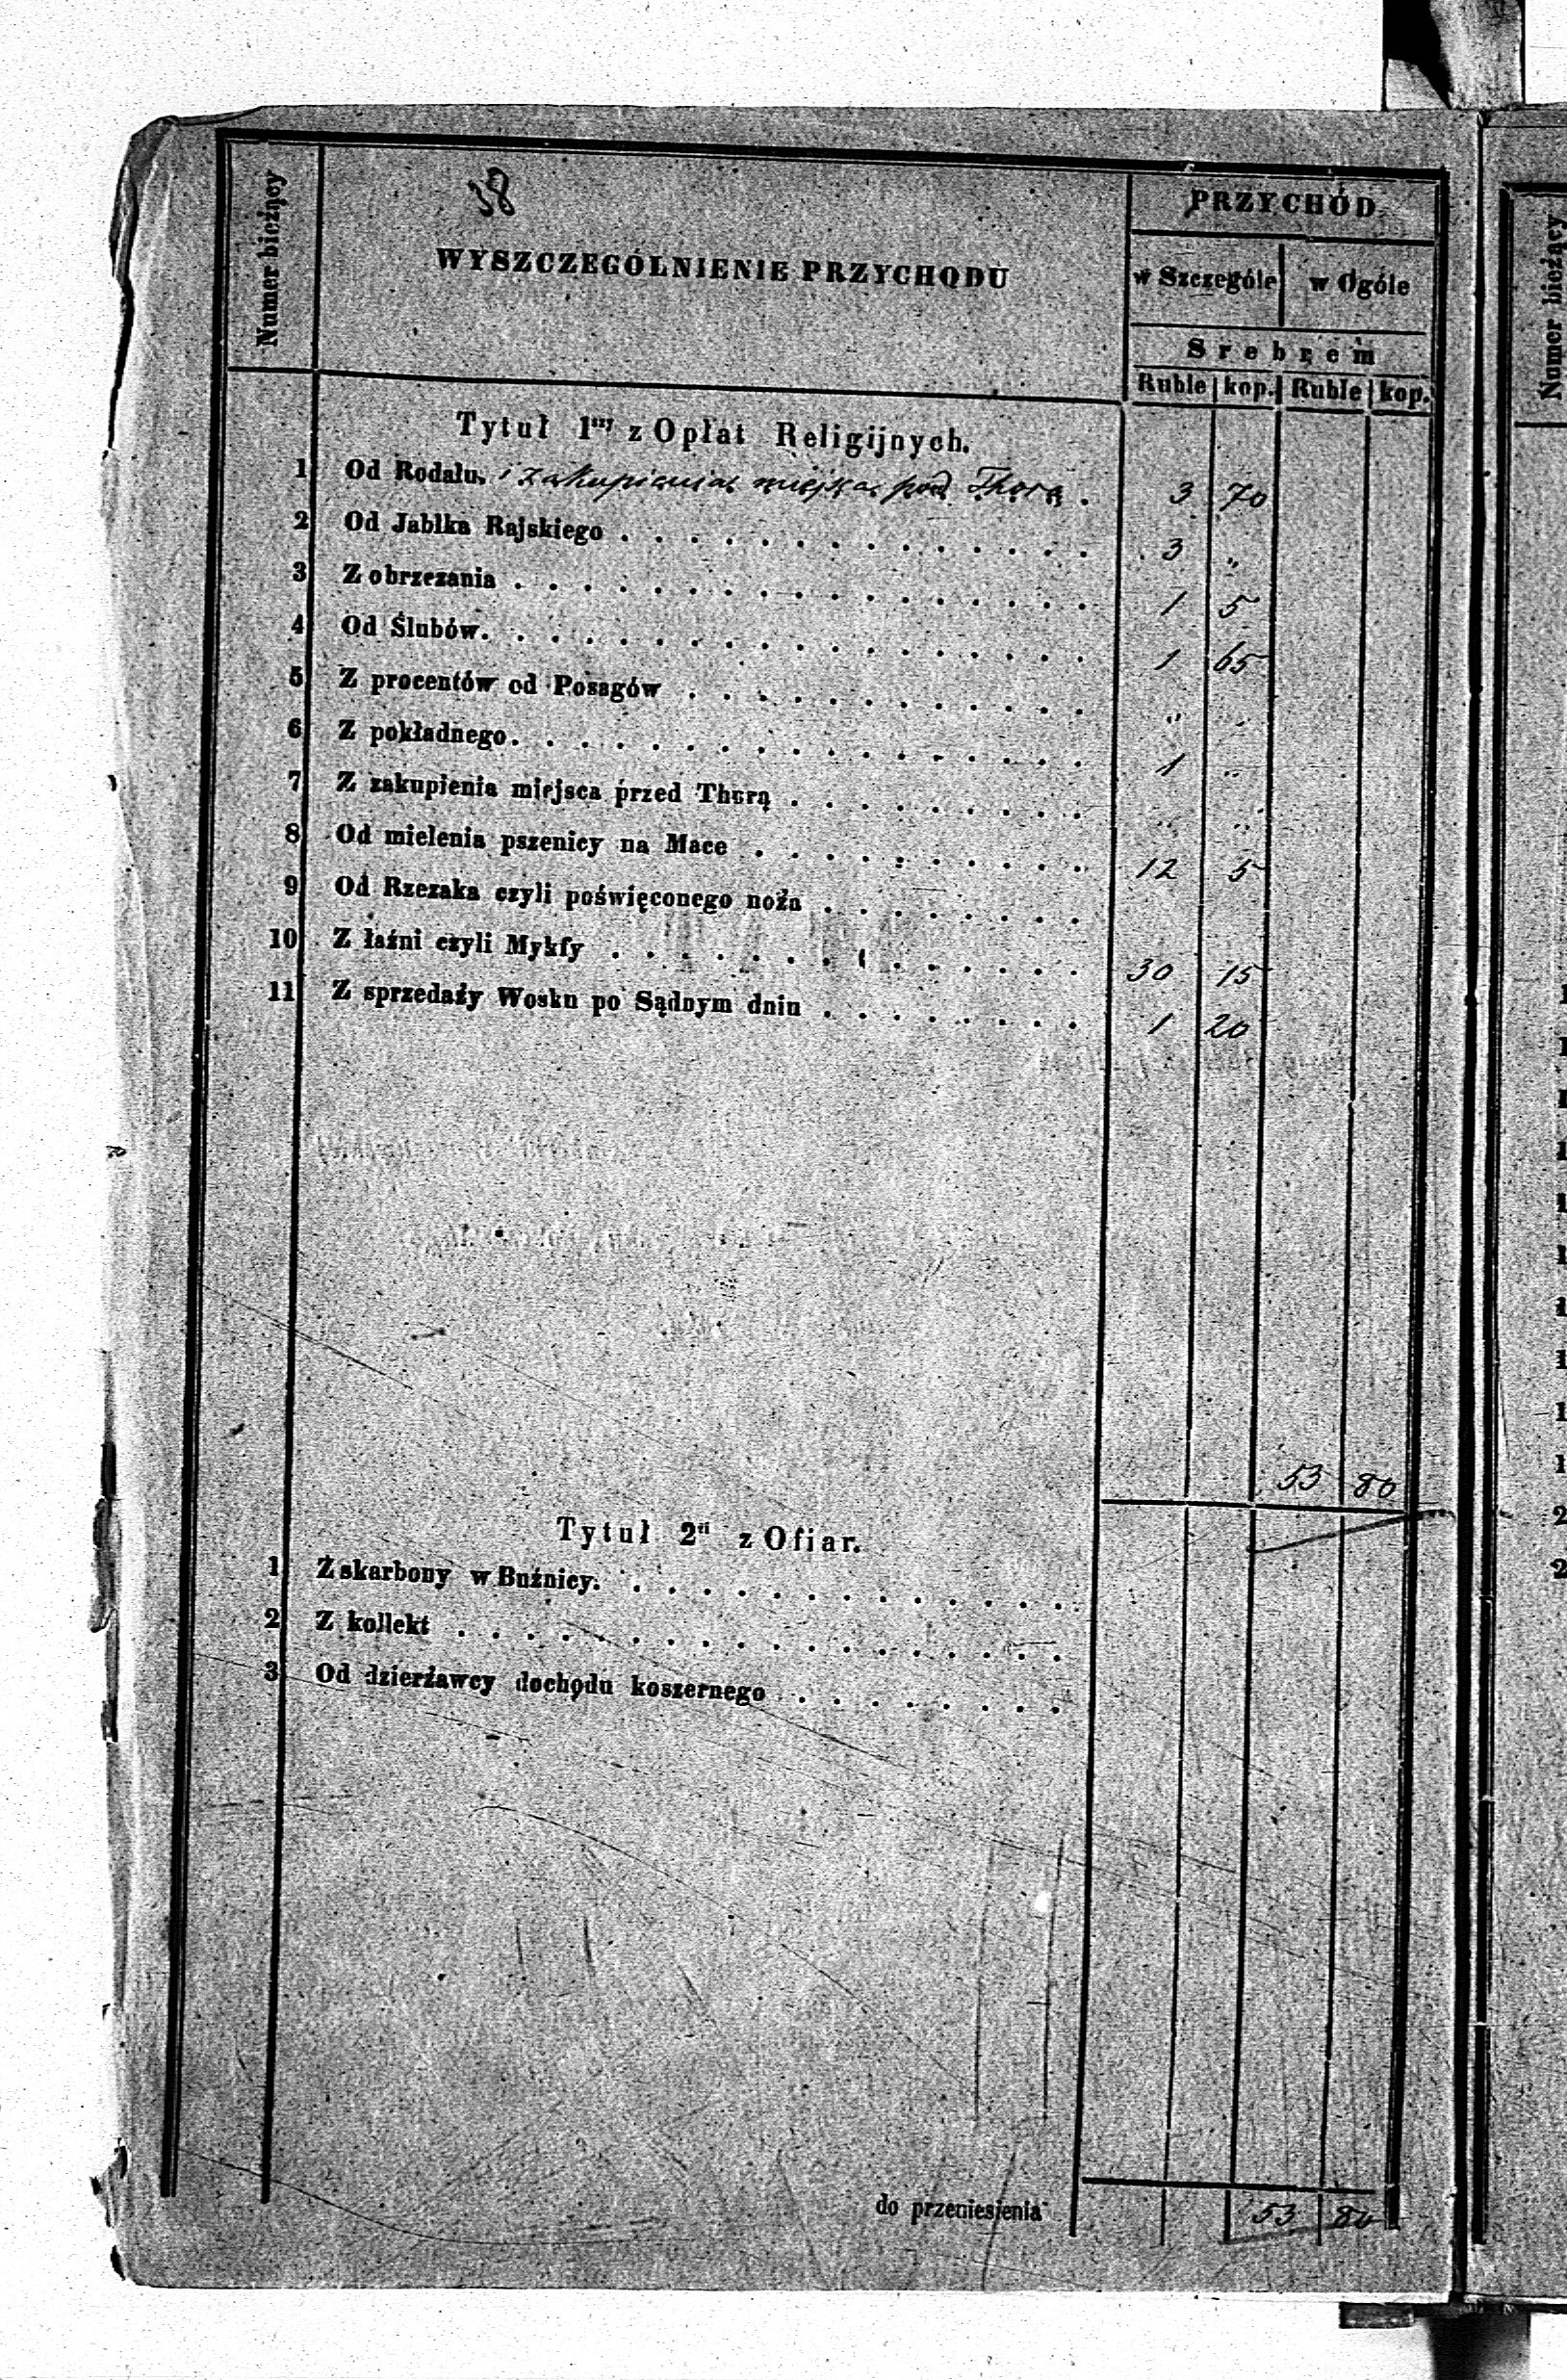 38
Numer bieżący
WYSZCZEGÓLNIENIE PRZYCHODU
PRZYCHÓD
w Szczególe w Ogóle
Srebrem
Ruble kop. Ruble kop.
Tytuł 1ny z Opłat Religijnych.
1 Od Rodału. i zakupienia miejsca pod Thorą . 3 70
2 Od Jabłka Rajskiego . . . . . . . . . . . . . . 3 „
3 Z obrzezania . . . . . . . . . . . . . . . . . 1 5
4 Od Ślubów. . . . . . . . . . . . . . . . . . 1 65
5 Z procentów od Posagów . . . . . . . . . . . . „ „
6 Z pokładnego. . . . . . . . . . . . . . . . . 1 „
7 Z zakupienia miejsca przed Thorą . . . . . . . . . „ „
8 Od mielenia pszenicy na Mace . . . . . . . . . . 12 5
9 Od Rzezaka czyli poświęconego noża . . . . . . . .
10 Z łaźni czyli Mykfy . . . . . . . . . . . . . . 30 15
11 Z sprzedaży Wosku po Sądnym dniu . . . . . . . . 1 20
53 80
Tytuł 2gi z Ofiar.
1 Z skarbony w Buźnicy. . . . . . . . . . . . . .
2 Z kollekt . . . . . . . . . . . . . . . . . .
3 Od dzierżawcy dochodu koszernego . . . . . . . .
do przeniesienia 53 80
Numer bieżący